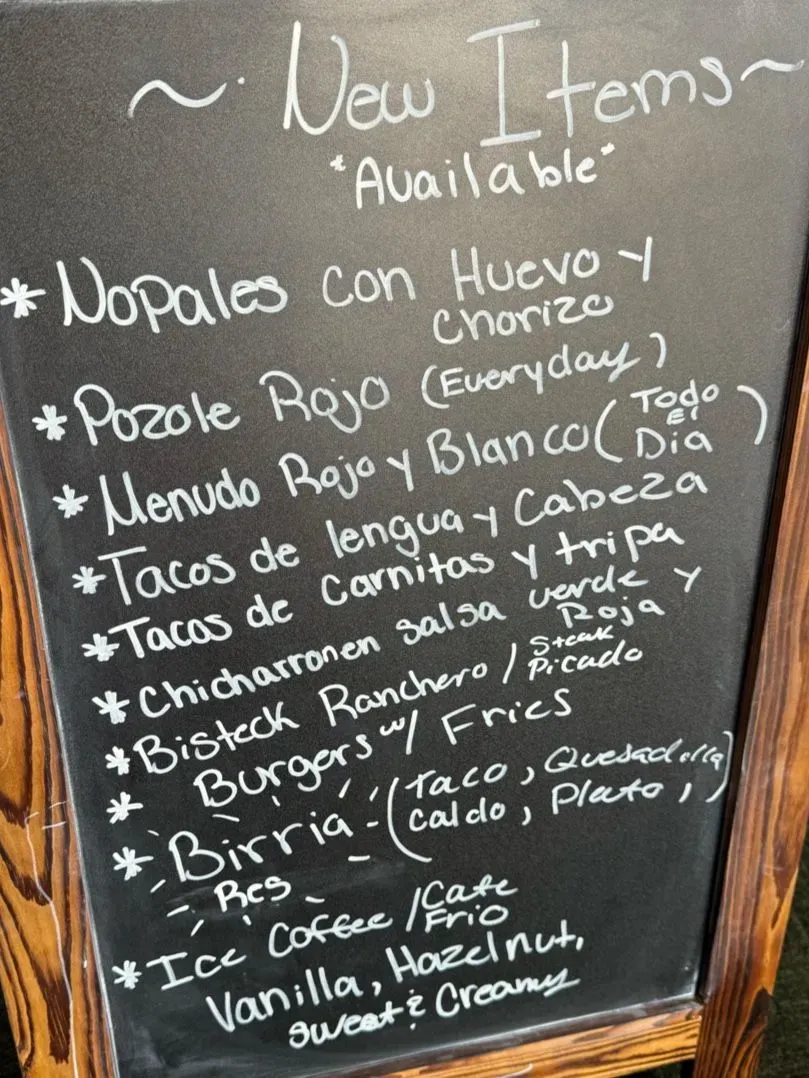 ~ New Items ~
"Available"
* Nopales con Huevo y
Chorizo
* Pozole Rojo (Everyday)
* Menudo Rojo y Blanco (Todo El Dia)
* Tacos de lengua y Cabeza
* Tacos de Carnitas y tripa
* Chicharron en salsa verde y Roja
* Bisteck Ranchero / Steak Picado
* Burgers w/ Fries
* Birria - (Taco, Quesadilla
Caldo, Plato, )
Res
* Ice Coffee / Cafe Frio
Vanilla, Hazelnut,
sweet & Creamy